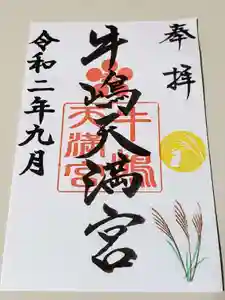 奉拝
牛嶋天満宮
牛嶋
天満宮
令和二年九月